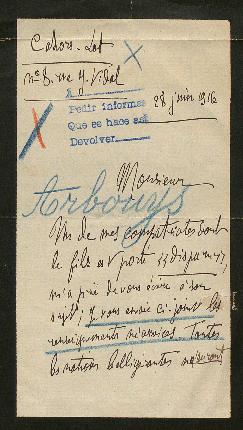 Cahors - Lot
n° 8. rue H. Vidal
28 juin 1916
Pedir informes
Que se hace así
Devolver
Monsieur
Arbouys
Un de mes compatriotes dont
le fils est porté
m'a prié de vous écrire à son
sujet; Je vous envoie ci-joint les
renseignements nécessaires. Toutes
les nations belligérantes